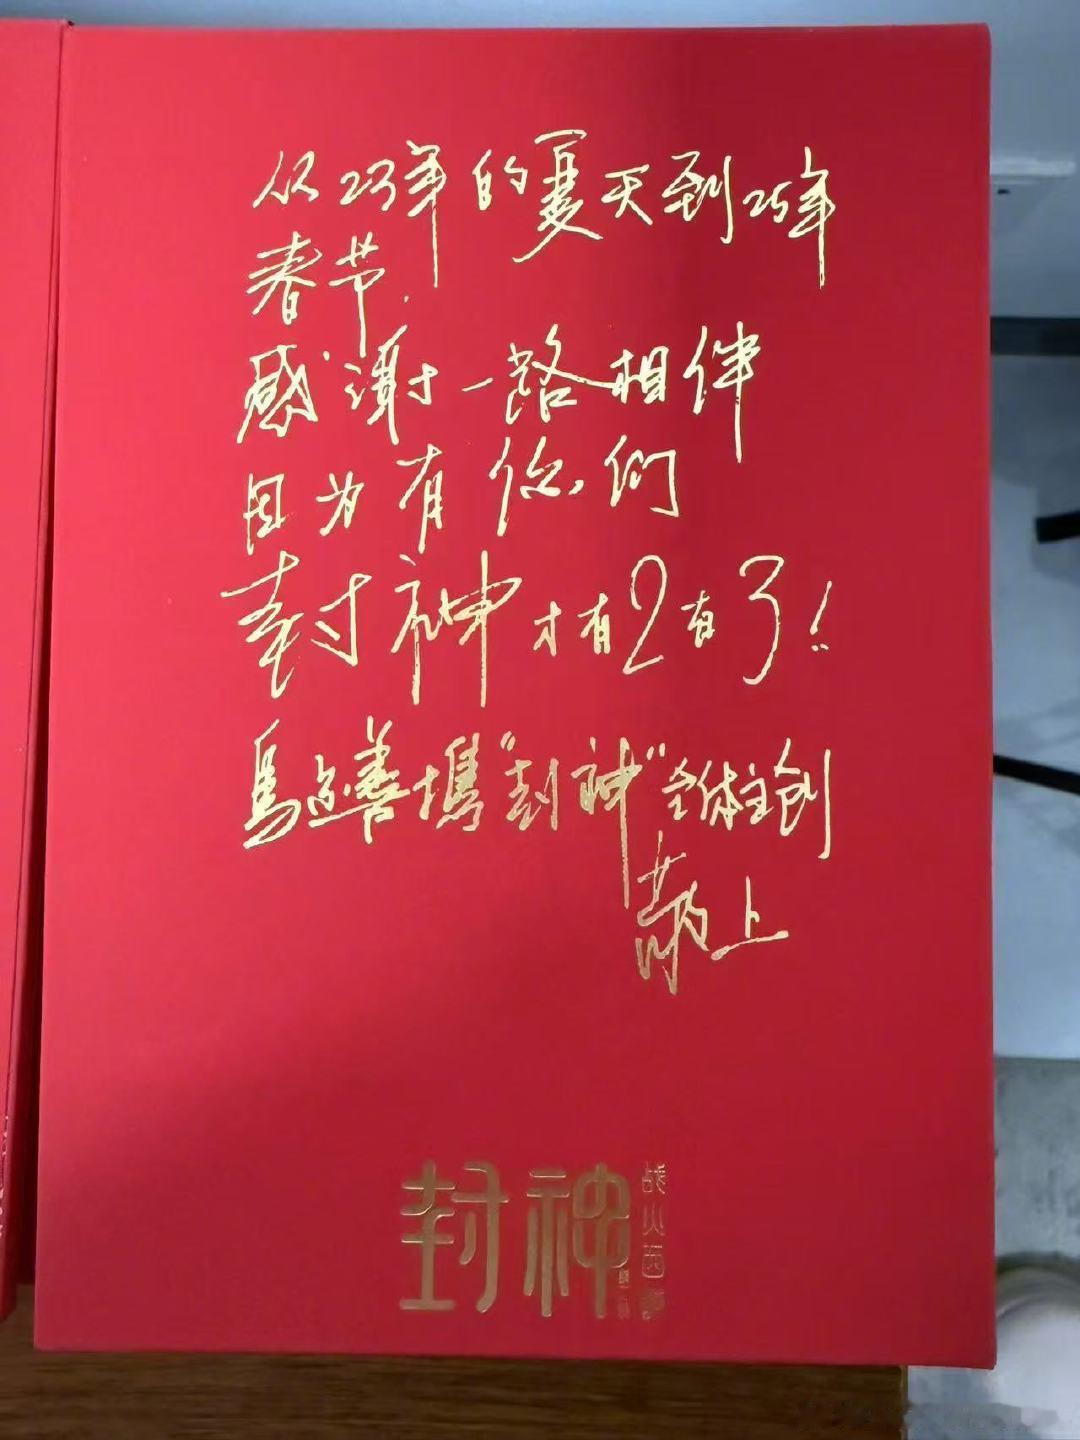 从23年的夏天到25年
春节.
感谢一路相伴
因为有你们
封神才有2有3!
乌尔善携“封神”全体主创
敬上
封神
战火西岐